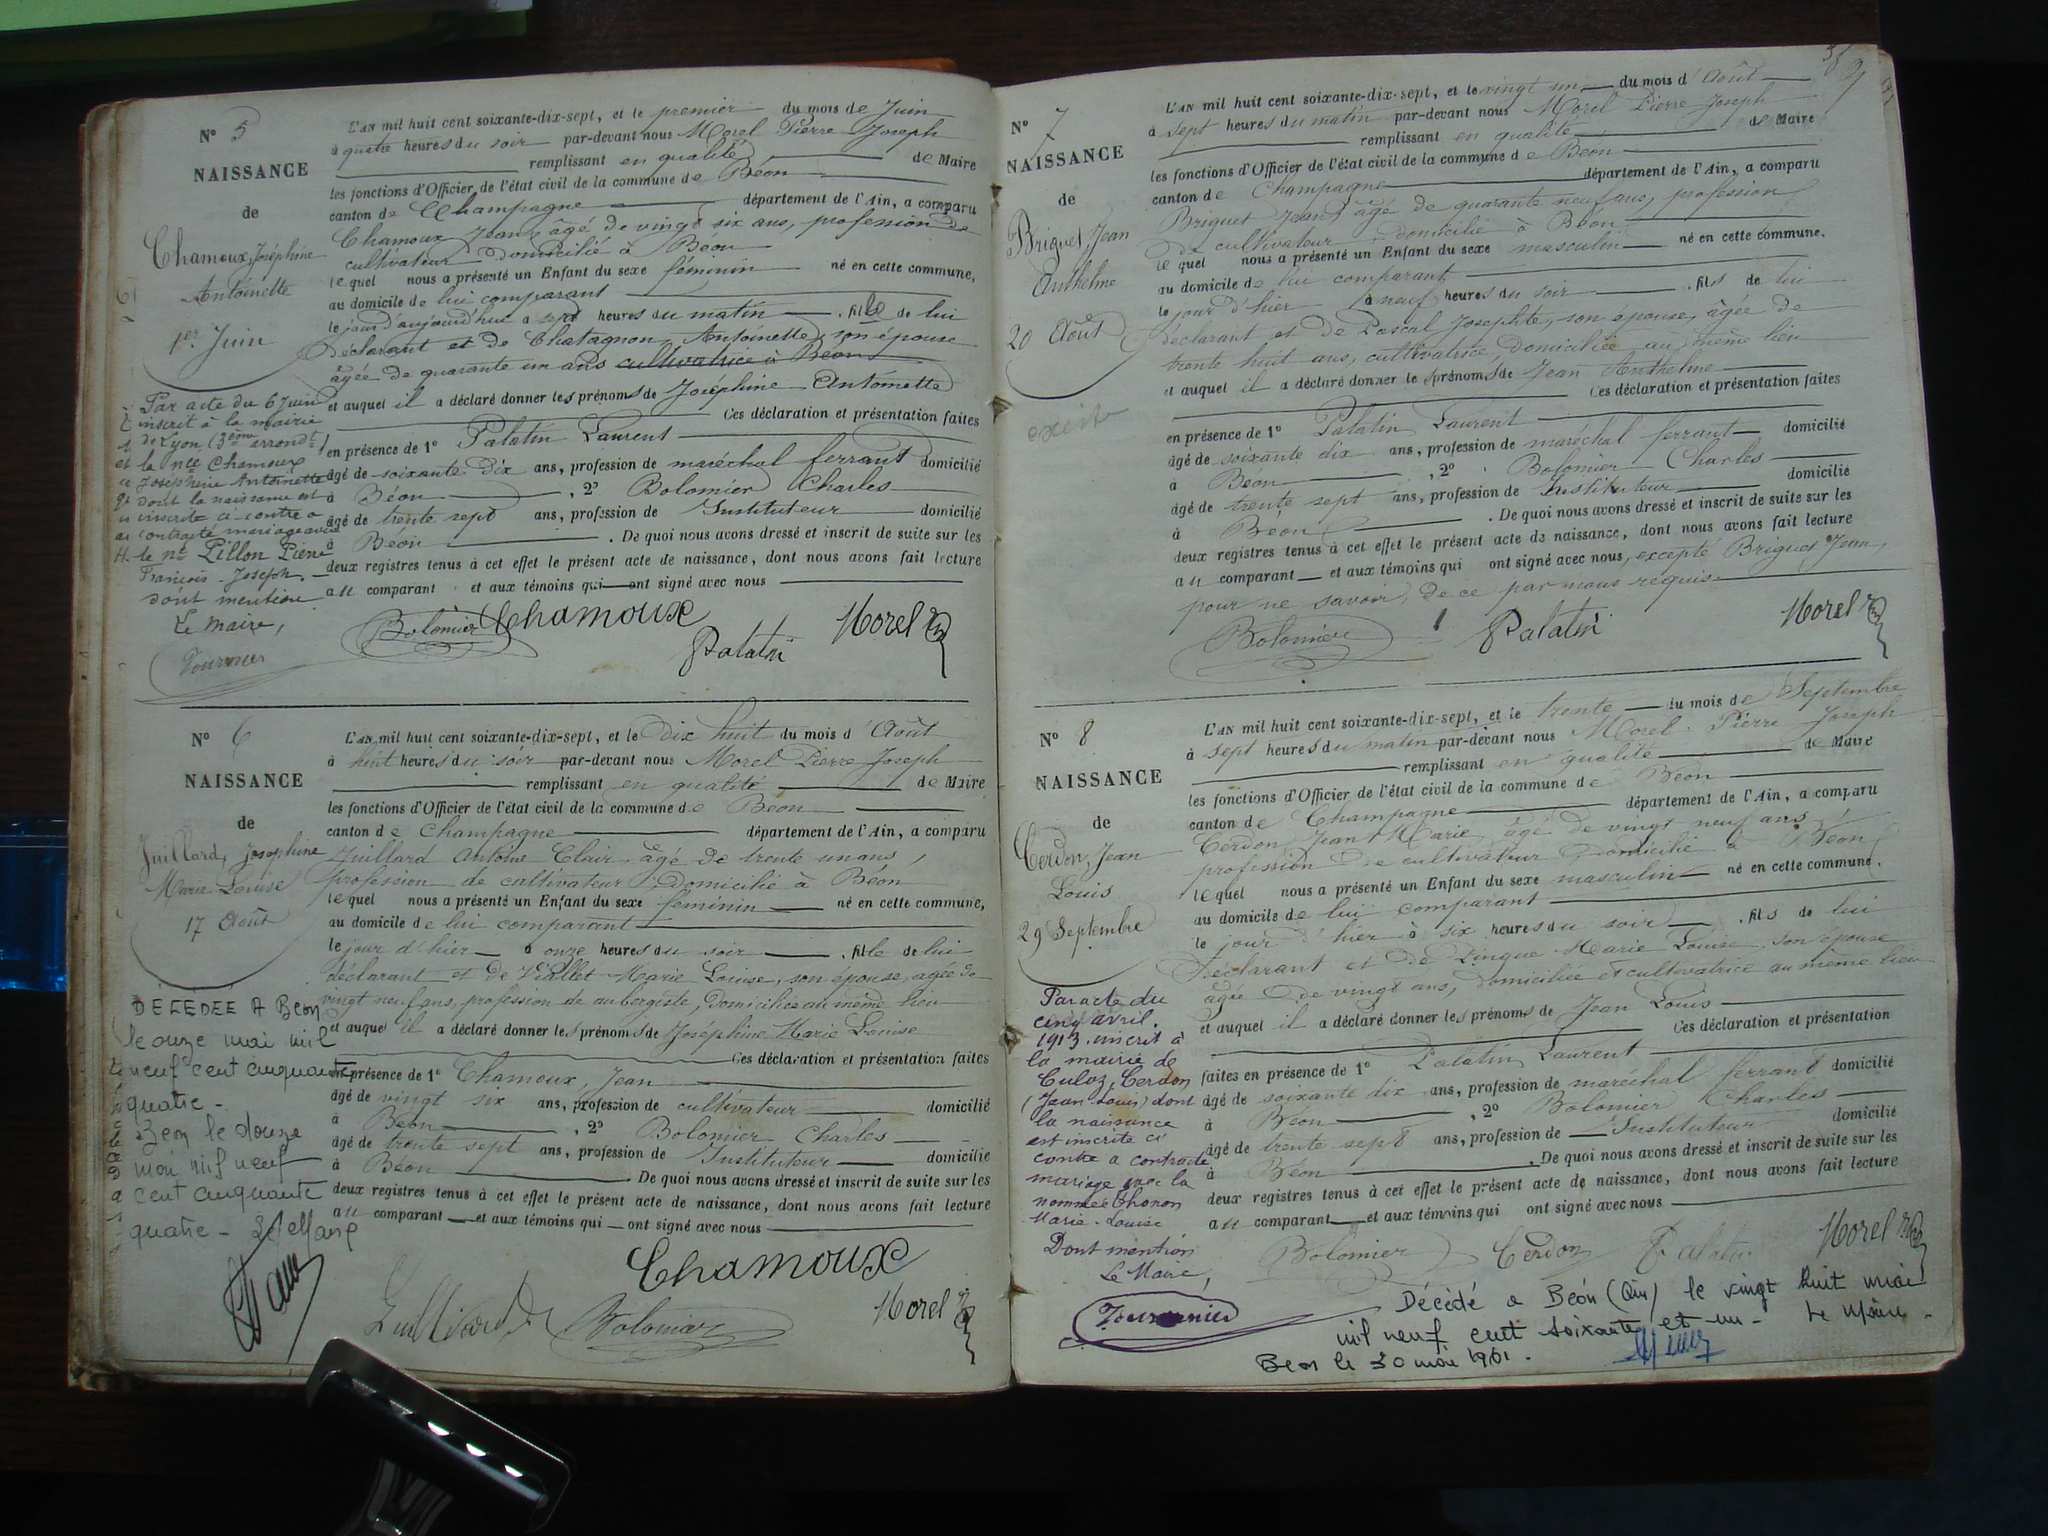 N° 5
NAISSANCE
de
Chamoux, Joséphine
Antoinette
1er Juin
Par acte du 6 Juin
inscrit à la mairie
de Lyon (3eme arrondt)
la née Chamoux
Josephine Antoinette
dont la naissance est
inscrite ci-contre a
contracté mariage avec
le né Pillon Pierre
François-Joseph.
dont mention
Le Maire,
Tournier
L'AN mil huit cent soixante-dix-sept, et le premier du mois de Juin
à quatre heures du soir par-devant nous Morel Pierre Joseph
remplissant en qualité de Maire
les fonctions d'Officier de l'état civil de la commune de Béon
canton de Champagne département de l'Ain, a comparu
Chamoux Jean, âgé de vingt six ans, profession de
cultivateur domicilié à Béon
lequel nous a présenté un Enfant du sexe féminin né en cette commune,
au domicile de lui comparant
le jour d'aujourd'hui à sept heures du matin fille de lui
déclarant et de Chatagnon Antoinette, son épouse
âgée de quarante un ans cultivatrice à Béon
et auquel il a déclaré donner les prénoms de Joséphine Antoinette
Ces déclaration et présentation faites
en présence de 1° Palatin Laurent
âgé de soixante dix ans, profession de maréchal ferrant domicilié
à Béon, 2° Bolomier Charles
âgé de trente sept ans, profession de Instituteur domicilié
à Béon. De quoi nous avons dressé et inscrit de suite sur les
deux registres tenus à cet effet le présent acte de naissance, dont nous avons fait lecture
au comparant et aux témoins qui ont signé avec nous
Bolomier Chamoux Palatin Morel
N° 6
NAISSANCE
de
Juillard, Josephine
Marie Louise
17 Août
DÉCÉDÉE A Béon
le onze mai mil
neuf cent cinquante
quatre -
Béon le douze
mai mil neuf
cent cinquante
quatre -
L'AN mil huit cent soixante-dix-sept, et le dix huit du mois d'Août
à huit heures du soir par-devant nous Morel Pierre Joseph
remplissant en qualité de Maire
les fonctions d'Officier de l'état civil de la commune de Béon
canton de Champagne département de l'Ain, a comparu
Juillard Antoine Clair, âgé de trente un ans,
profession de cultivateur, domicilié à Béon
lequel nous a présenté un Enfant du sexe féminin né en cette commune,
au domicile de lui comparant
le jour d'hier à onze heures du soir fille de lui
déclarant et de Viallet Marie Louise, son épouse, agée de
vingt neuf ans, profession de aubergiste, domiciliée au même lieu
et auquel il a déclaré donner les prénoms de Joséphine Marie Louise
Ces déclaration et présentation faites
en présence de 1° Chamoux, Jean
âgé de vingt six ans, profession de cultivateur domicilié
à Béon, 2° Bolomier Charles
âgé de trente sept ans, profession de Instituteur domicilié
à Béon. De quoi nous avons dressé et inscrit de suite sur les
deux registres tenus à cet effet le présent acte de naissance, dont nous avons fait lecture
au comparant et aux témoins qui ont signé avec nous
Chamoux
Juillard Bolomier Morel
N° 7
NAISSANCE
de
Briguet, Jean
Anthelme
20 Août
L'AN mil huit cent soixante-dix-sept, et le vingt un du mois d'Août
à sept heures du matin par-devant nous Morel Pierre Joseph
remplissant en qualité de Maire
les fonctions d'Officier de l'état civil de la commune de Béon
canton de Champagne département de l'Ain, a comparu
Briguet Jean, âgé de quarante neuf ans, profession
de cultivateur domicilié à Béon
lequel nous a présenté un Enfant du sexe masculin né en cette commune.
au domicile de lui comparant
le jour d'hier à neuf heures du soir fils de lui
déclarant et de Pascal Josephte, son épouse, âgée de
trente huit ans, cultivatrice, domiciliée au même lieu
et auquel il a déclaré donner les prénoms de Jean Anthelme
Ces déclaration et présentation faites
en présence de 1° Palatin Laurent
âgé de soixante dix ans, profession de maréchal ferrant domicilié
à Béon, 2° Bolomier Charles
âgé de trente sept ans, profession de Instituteur domicilié
à Béon. De quoi nous avons dressé et inscrit de suite sur les
deux registres tenus à cet effet le présent acte de naissance, dont nous avons fait lecture
au comparant et aux témoins qui ont signé avec nous, excepté Briguet Jean,
pour ne savoir, de ce par nous requis.
Bolomier Palatin Morel
N° 8
NAISSANCE
de
Cerdon, Jean
Louis
29 Septembre
Par acte du
cinq avril.
1913. inscrit à
la mairie de
Culoz, Cerdon
(Jean Louis) dont
la naissance
est inscrite ci
contre a contracté
mariage avec la
nommée Thonon
Marie-Louise
Dont mention
Le Maire,
Tournier
L'AN mil huit cent soixante-dix-sept, et le trente du mois de Septembre
à sept heures du matin par-devant nous Morel Pierre Joseph
remplissant en qualité de Maire
les fonctions d'Officier de l'état civil de la commune de Béon
canton de Champagne département de l'Ain, a comparu
Cerdon Jean Marie, âgé de vingt neuf ans
profession de cultivateur domicilié à Béon
lequel nous a présenté un Enfant du sexe masculin né en cette commune.
au domicile de lui comparant
le jour d'hier à six heures du soir fils de lui
déclarant et de Pingue Marie Louise son épouse
âgée de vingt ans, domiciliée et cultivatrice au même lieu
et auquel il a déclaré donner les prénoms de Jean Louis
Ces déclaration et présentation
faites en présence de 1° Palatin Laurent
âgé de soixante dix ans, profession de maréchal ferrant domicilié
à Béon, 2° Bolomier Charles
âgé de trente sept ans, profession de Instituteur domicilié
à Béon. De quoi nous avons dressé et inscrit de suite sur les
deux registres tenus à cet effet le présent acte de naissance, dont nous avons fait lecture
au comparant et aux témoins qui ont signé avec nous
Bolomier Cerdon Palatin Morel
Décédé a Béon (Ain) le vingt huit mai
mil neuf cent soixante et un - Le Maire -
Béon le 30 mai 1961.